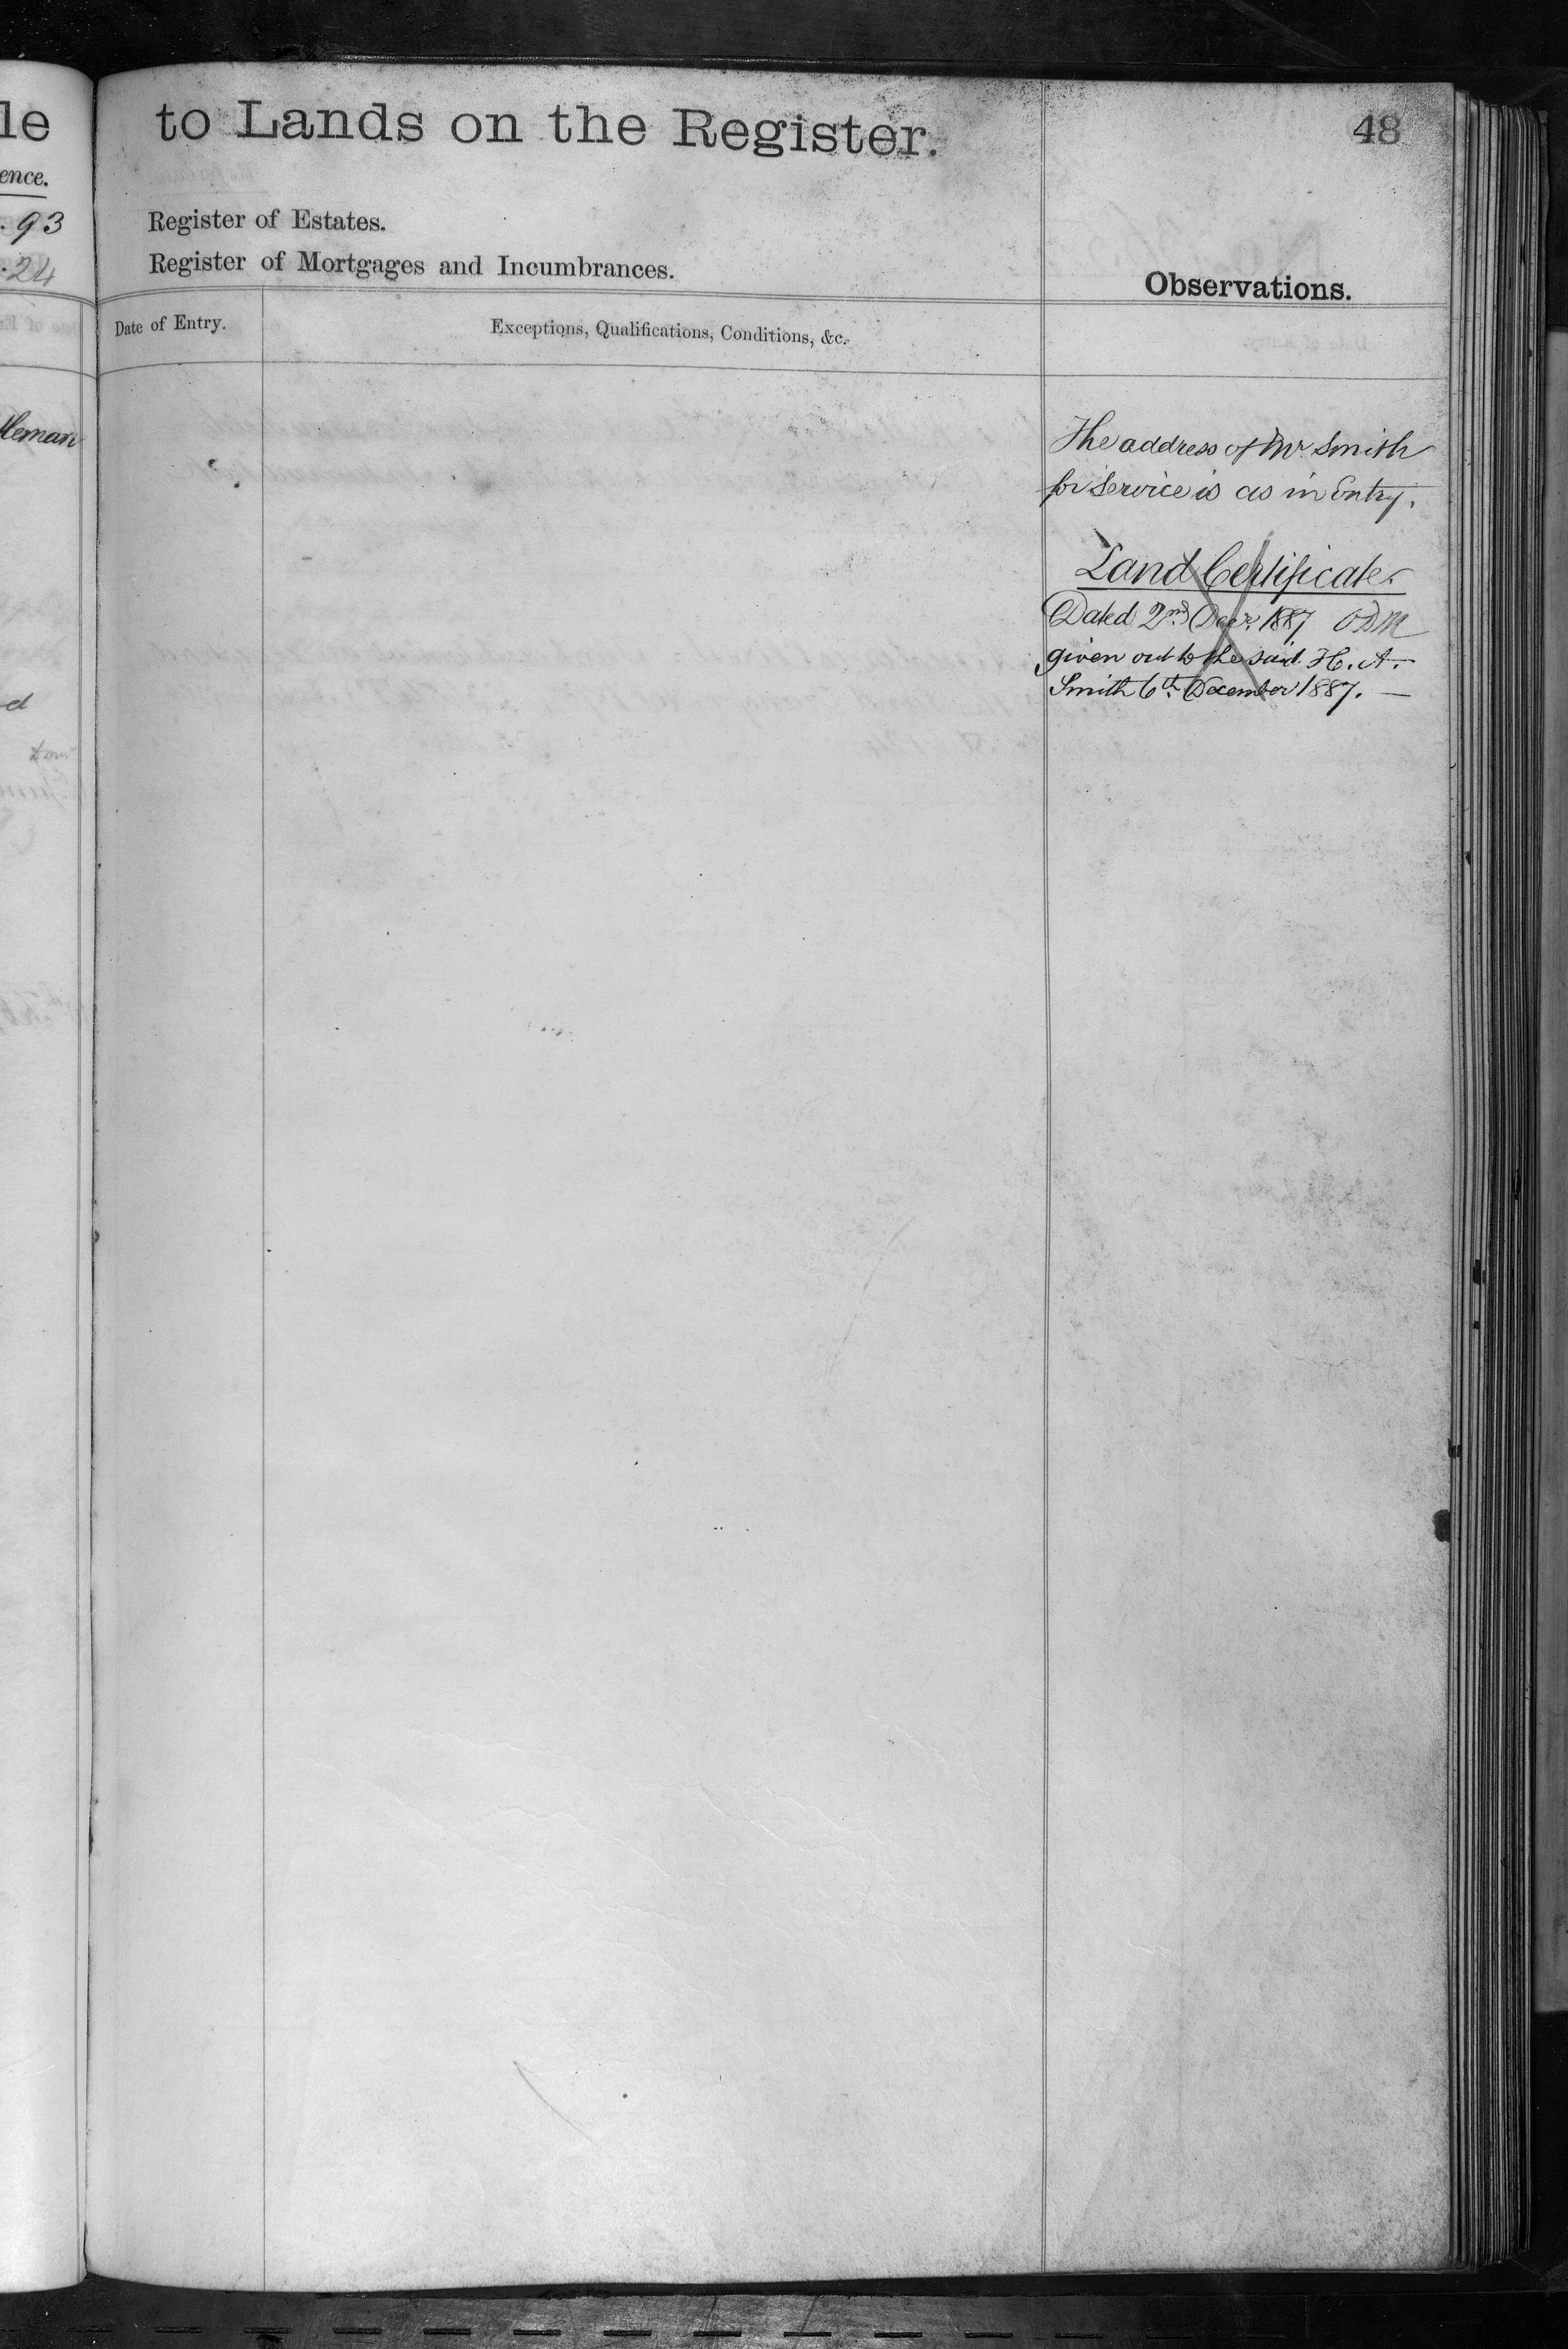 le
ence.
. 93
. 24
tleman
d
to Lands on the Register.
48
Register of Estates.
Register of Mortgages and Incumbrances.
Observations.
Date of Entry.
Exceptions, Qualifications, Conditions, &c.
The address of Mr Smith
for Service is as in Entry.
Land Certificate.
Dated 2nd Decr. 1887
given out to the said H. A.
Smith 6th December 1887. —